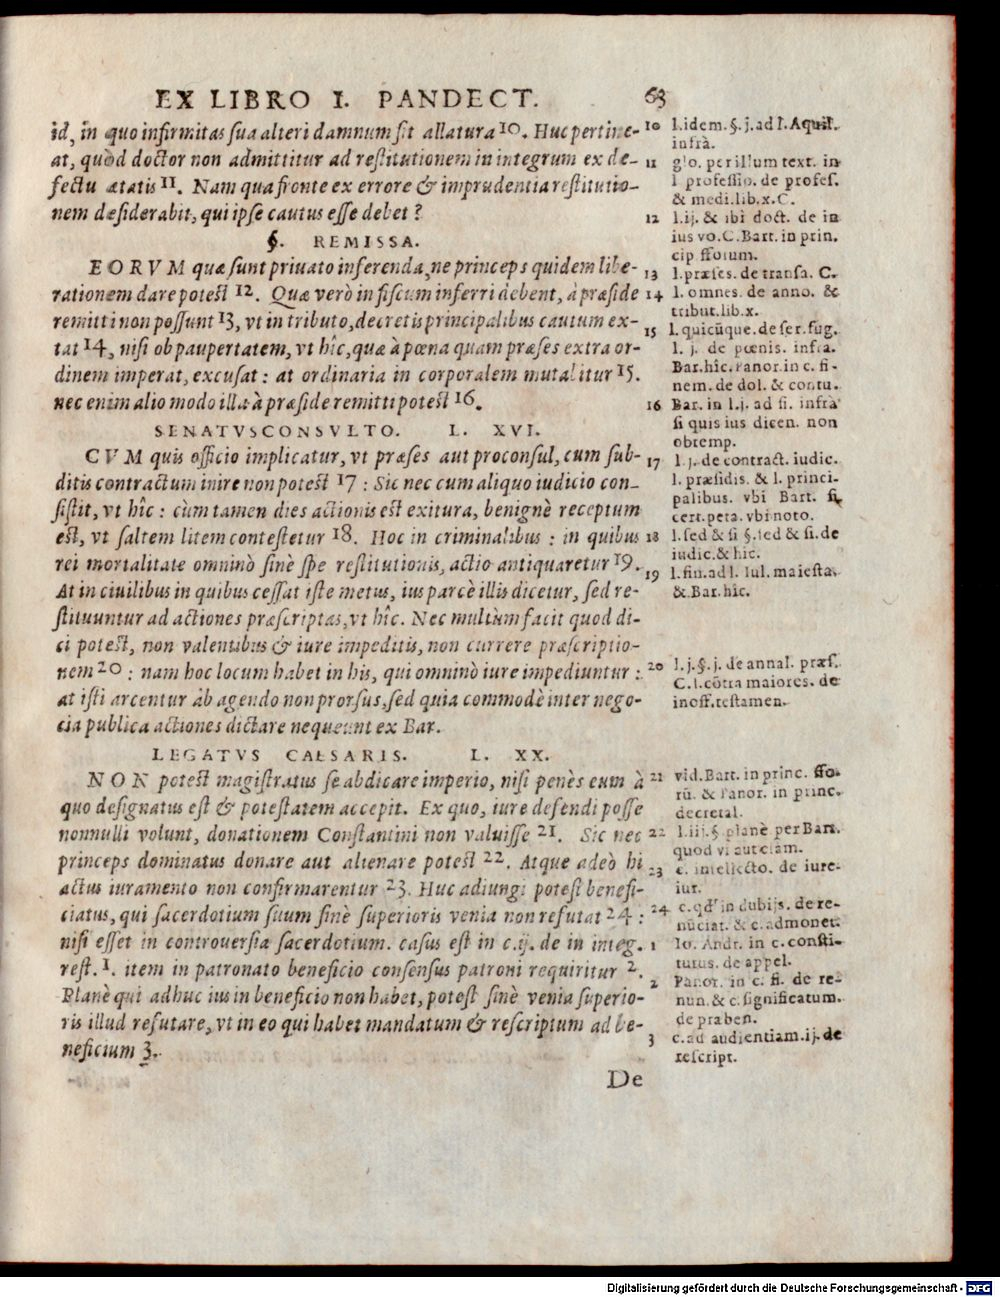 EX LIBRO I. PANDECT. 63
id, in quo infirmitas sua alteri damnum sit allatura 10. Huc pertine-
at, quòd doctor non admittitur ad restitutionem in integrum ex de-
fectu ætatis 11. Nam qua fronte ex errore & imprudentia restitutio-
nem desiderabit, qui ipse cautus esse debet?
§. REMISSA.
EORVM quæ sunt priuato inferenda, ne princeps quidem libe-
rationem dare potest 12. Quæ verò in fiscum inferri debent, à præside
remitti non possunt 13, vt in tributo, decretis principalibus cautum ex-
tat 14, nisi ob paupertatem, vt hîc, quæ à pœna quam præses extra or-
dinem imperat, excusat: at ordinaria in corporalem mutatitur 15.
nec enim alio modo illa à præside remitti potest 16.
SENATVSCONSVLTO. L. XVI.
CVM quis officio implicatur, vt præses aut proconsul, cum sub-
ditis contractum inire non potest 17: Sic nec cum aliquo iudicio con-
sistit, vt hîc: cùm tamen dies actionis est exitura, benignè receptum
est, vt saltem litem contestetur 18. Hoc in criminalibus: in quibus
rei mortalitate omninò sinè spe restitutionis, actio antiquaretur 19.
At in ciuilibus in quibus cessat iste metus, ius parcè illis dicetur, sed re-
stituuntur ad actiones præscriptas, vt hîc. Nec multùm facit quod di-
ci potest, non valentibus & iure impeditis, non currere præscriptio-
nem 20: nam hoc locum habet in his, qui omninò iure impediuntur:
at isti arcentur ab agendo non prorsus, sed quia commodè inter nego-
cia publica actiones dictare nequeunt ex Bar.
LEGATVS CAESARIS. L. XX.
NON potest magistratus se abdicare imperio, nisi penès eum à
quo designatus est & potestatem accepit. Ex quo, iure defendi posse
nonnulli volunt, donationem Constantini non valuisse 21. Sic nec
princeps dominatus donare aut alienare potest 22. Atque adeò hi
actus iuramento non confirmarentur 23. Huc adiungi potest benefi-
ciatus, qui sacerdotium suum sinè superioris venia non refutat 24:
nisi esset in controuersia sacerdotium. casus est in c. ij. de in integ.
rest. 1. item in patronato beneficio consensus patroni requiritur 2.
Planè qui adhuc ius in beneficio non habet, potest sinè venia superio-
ris illud refutare, vt in eo qui habet mandatum & rescriptum ad be-
neficium 3.
De
10 l. idem. §. j. ad l. Aquil.
infrà.
11 glo. per illum text. in
l professio. de profes.
& medi. lib. x. C.
12 l. ij. & ibi doct. de in
ius vo. C. Bart. in prin.
cip. ffotum.
13 l. præses. de transa. C.
14 l. omnes. de anno. &
tribut. lib. x.
15 l. quicūque. de ser. fug.
l. j. de pœnis. infra.
Bar. hîc. Panor. in c. fi-
nem. de dol. & contu.
16 Bar. in l. j. ad fi. infrà
si quis ius dicen. non
obtemp.
17 l. j. de contract. iudic.
l. præsidis. & l. princi-
palibus. vbi Bart. si
cert. peta. vbi noto.
18 l. sed & si §. sed & si. de
iudic. & hic.
19 l. fin. ad l. Iul. maiesta.
& Bar. hîc.
20 l. j. §. j. de annal. præs.
C. l. cōtra maiores. de
inoff. testamen.
21 vid. Bart. in princ. ffo-
rū. & Panor. in princ.
decretal.
22 l. iij. § planè per Bart.
quod vi aut clam.
23 c. intellecto. de iure-
iur.
24 c. qđ in dubijs. de re-
nūciat. & c. admonet.
1 Io. Andr. in c. consti-
tutus. de appel.
2 Panor. in c. fi. de re-
nun. & c. significatum.
de præben.
3 c. ad audientiam. ij. de
rescript.
Digitalisierung gefördert durch die Deutsche Forschungsgemeinschaft - DFG